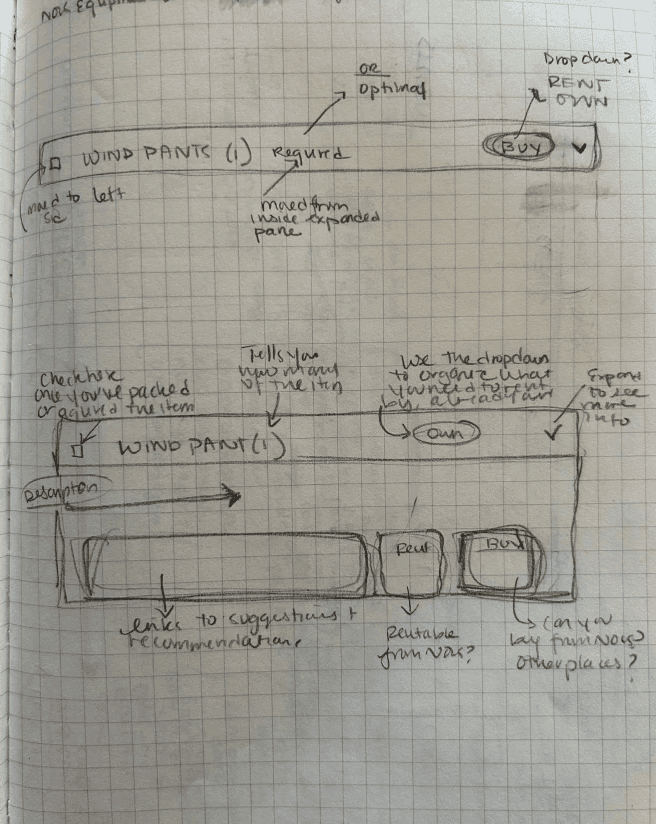 NOLS EQUIPM
OR
optimal
Dropdown?
RENT
OWN
WIND PANTS (1) Required
BUY
moved to left
moved from
inside expanded
pane
Checkbox
once you've packed
or aquired the item
Tells you
how many
of the item
Use the dropdown
to organize what
you need to rent
buy, already own
Expand
to see
more
info
WIND PANT (1)
OWN
Description
Rent
BUY
links to suggestions +
recommendations
Rentable
from NOLS?
Can you
buy from NOLS?
Other places?